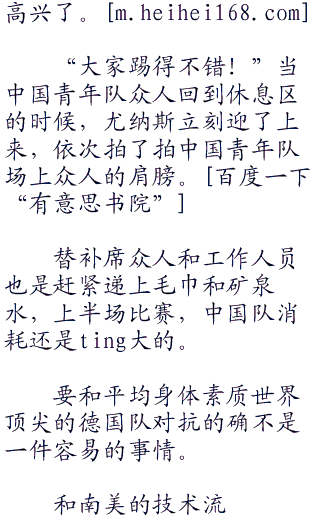 高兴了。[m.heihei168.com]
“大家踢得不错！”当
中国青年队众人回到休息区
的时候，尤纳斯立刻迎了上
来，依次拍了拍中国青年队
场上众人的肩膀。[百度一下
“有意思书院”]
替补席众人和工作人员
也是赶紧递上毛巾和矿泉
水，上半场比赛，中国队消
耗还是ting大的。
要和平均身体素质世界
顶尖的德国队对抗的确不是
一件容易的事情。
和南美的技术流